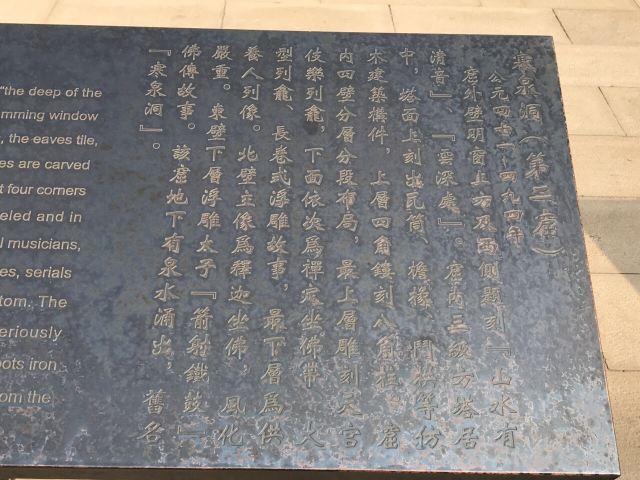 "the deep of the
mming window
, the eaves tile,
es are carved
t four corners
eled and in
l musicians,
es, serials
tom. The
eriously
oots iron
om the
寒泉洞（第二窟）
公元四七一-四九四年
窟外壁明窗上方及西側題刻『山水有
清音』、『雲深處』。窟内三級方塔居
中，塔面上刻出瓦筒、檐椽、鬥栱等仿
木建築構件，上層四角鏤刻八角柱。窟
内四壁分層分段布局，最上層雕刻天宫
伎樂列龕，下面依次爲禪定坐佛帶、大
型列龕、長卷式浮雕故事，最下層爲供
養人列像。北壁主像爲釋迦坐佛，風化
嚴重。東壁下層浮雕太子『箭射鐵鼓』
佛傳故事。該窟地下有泉水涌出，舊名
『寒泉洞』。